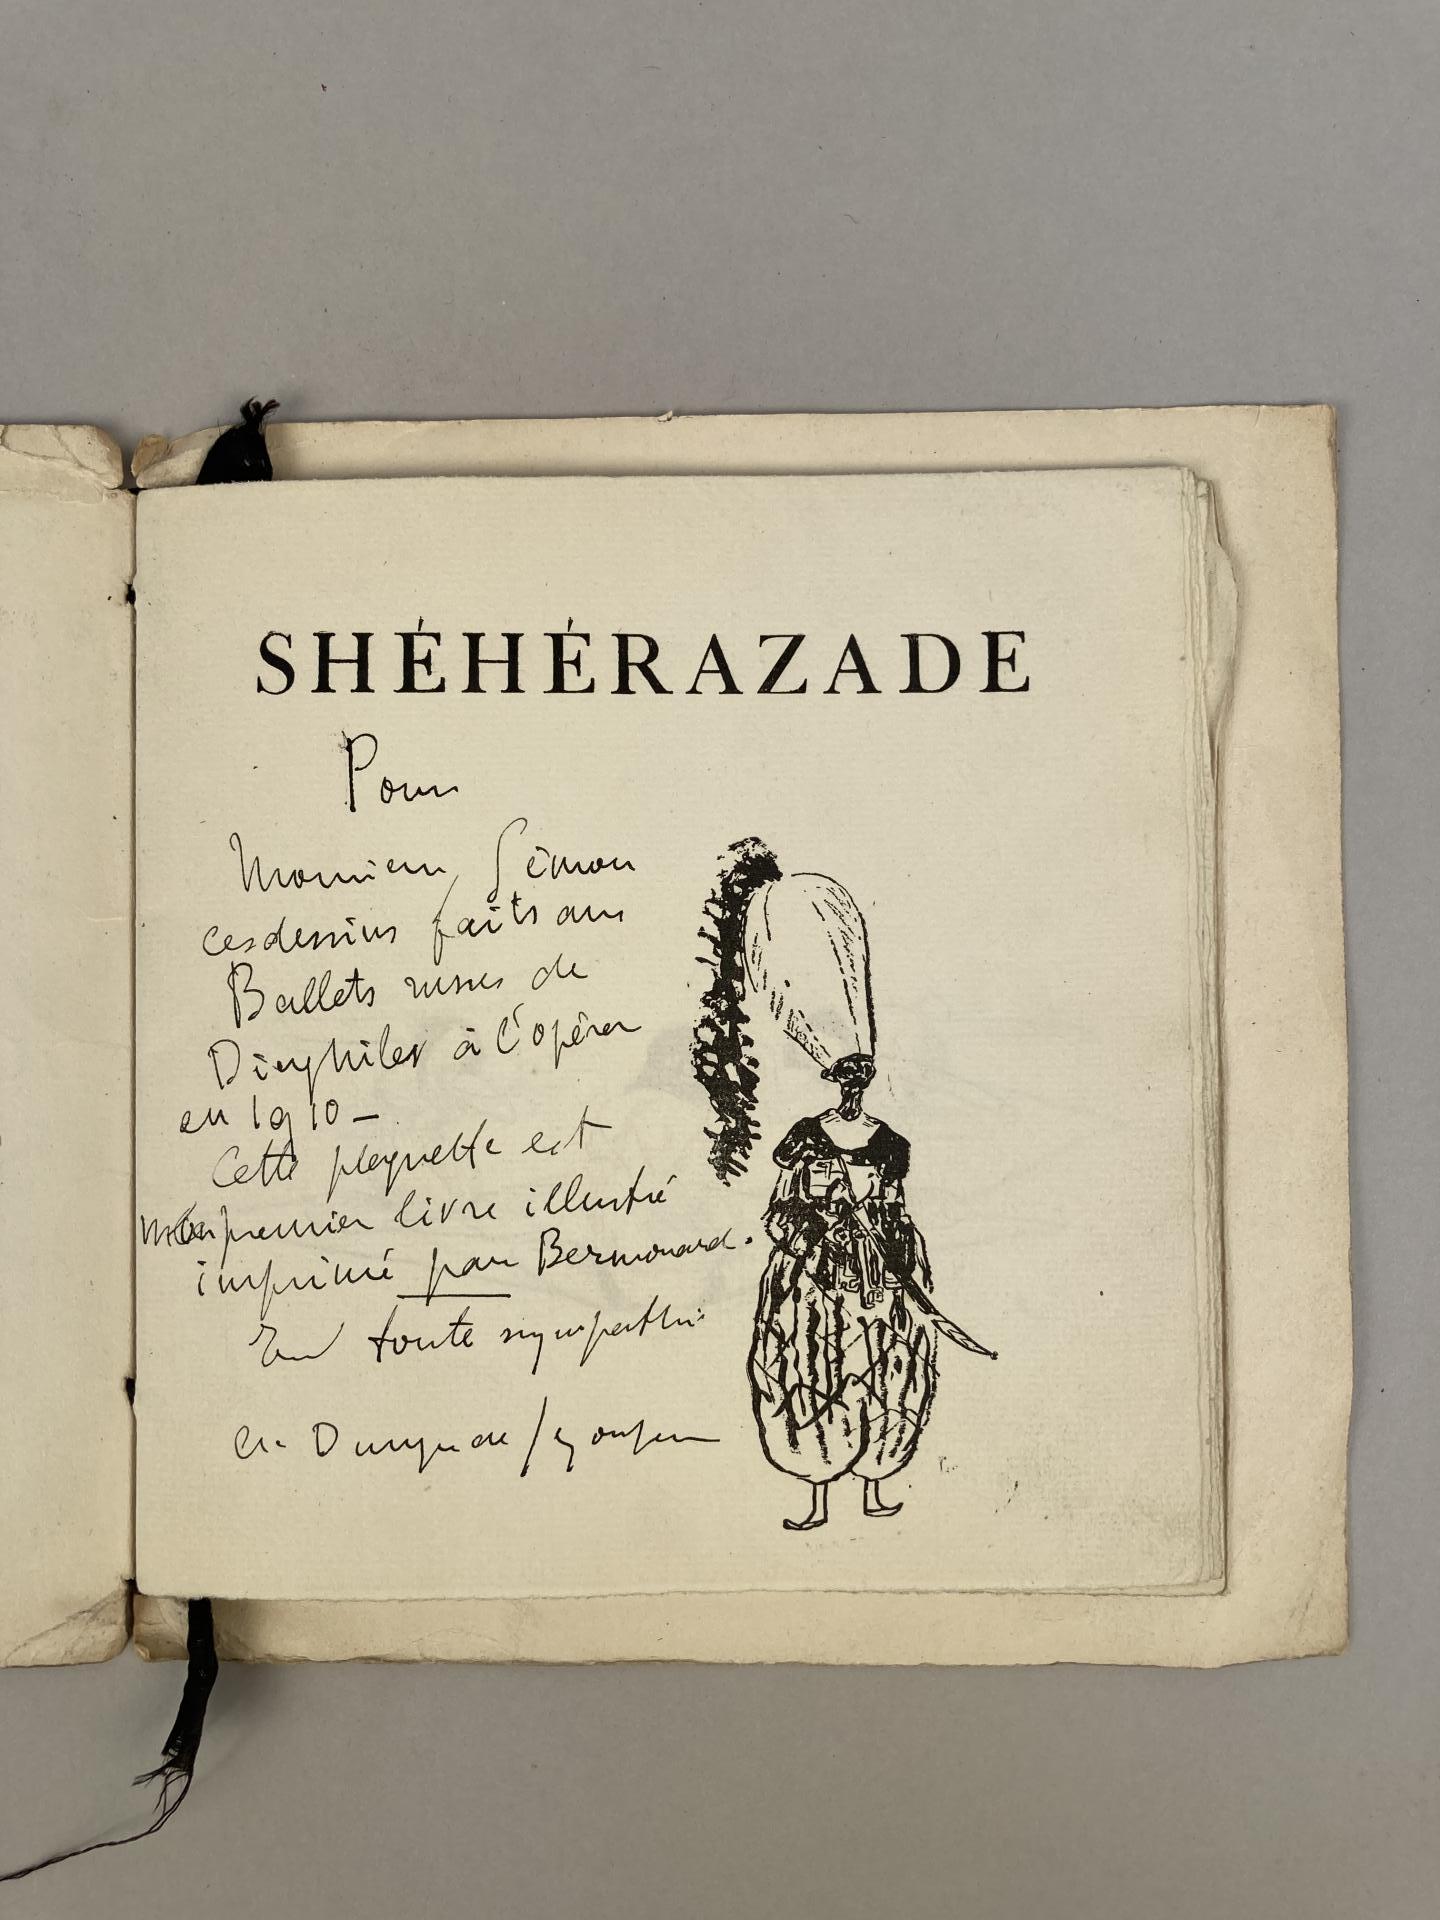 SHÉHÉRAZADE
Pour
Monsieur Simon
ces dessins faits aux
Ballets russes de
Diaghilev à l'opéra
en 1910 —
Cette plaquette est
mon premier livre illustré
imprimé par Bernouard.
En toute sympathie
A. Dunoyer de Segonzac